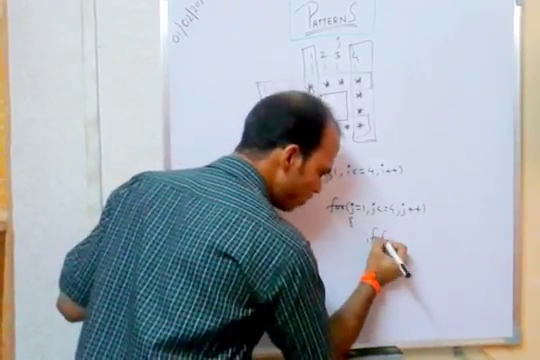 01/02/20
PATTERNS
j
1 2 3 4
* * *
*
*
* *
1, i<=4, i++)
for(j=1, j<=4, j++)
{
if(